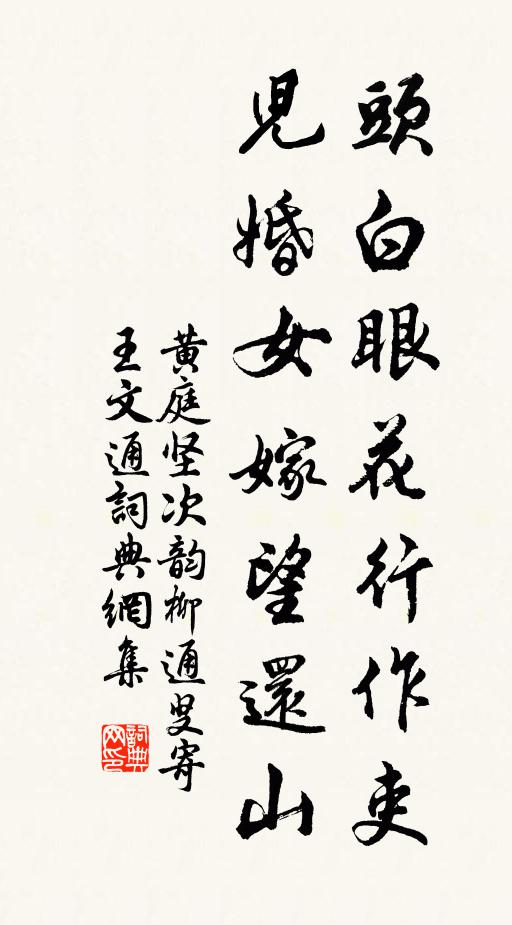 頭白眼花行作吏
兒婚女嫁望還山
黄庭坚次韵柳通叟寄
王文通詞典網集
詞典网印